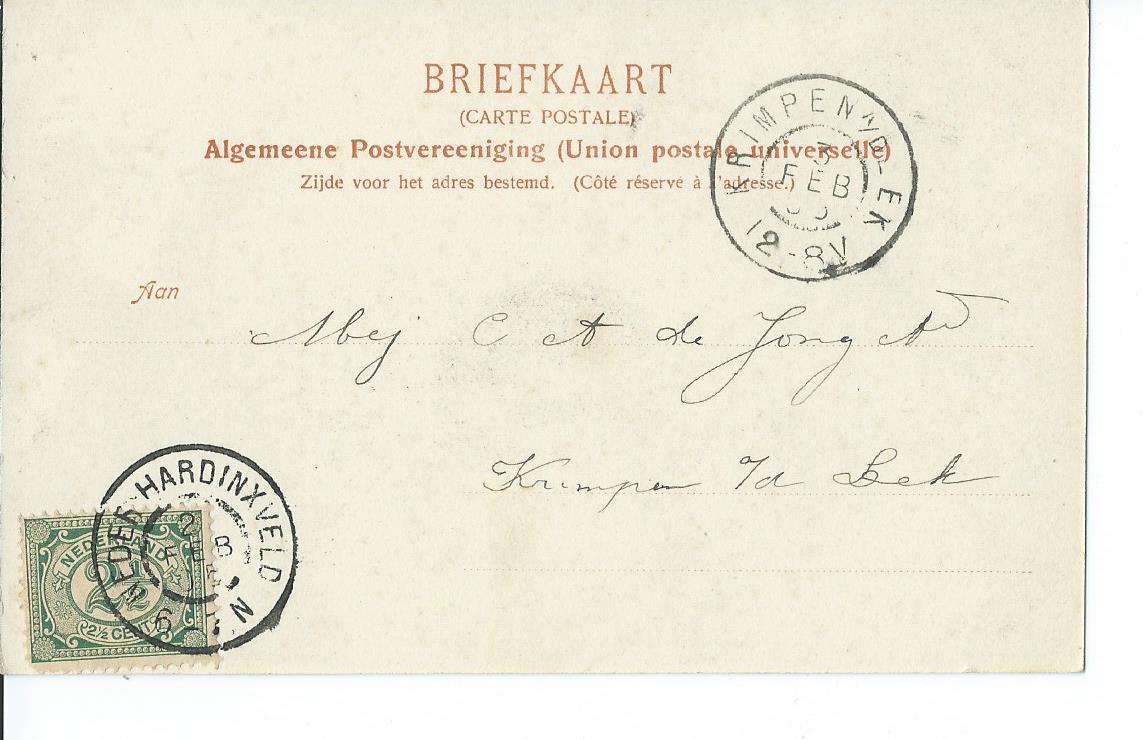 BRIEFKAART
(CARTE POSTALE)
Algemeene Postvereeniging (Union postale universelle)
Zijde voor het adres bestemd. (Côté réservé à l'adresse.)
KRIMPEN
LEK
3
FEB
12-8V
Aan
Mej C A de Jong
Krimpen a/d Lek
NEDER HARDINXVELD
2 FEB
6 N
NEDERLAND
2½
2½ CENT